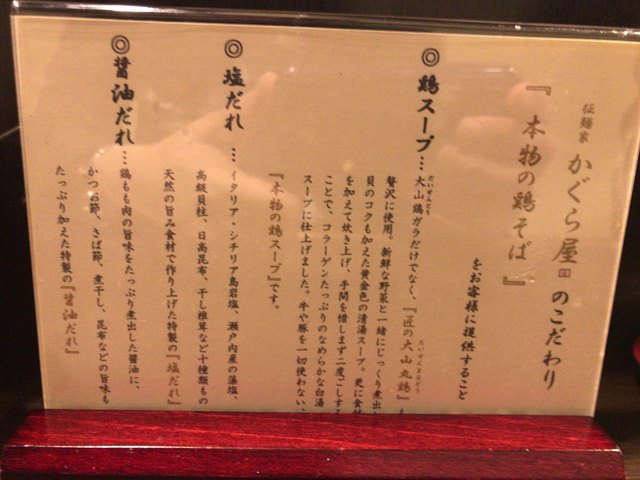 征麺家 かぐら屋 のこだわり
『本物の鶏そば』
をお客様に提供すること
◎鶏スープ…大山鶏ガラだけでなく、『匠の大山丸鶏』
だいせんどり
だいせんまるどり
贅沢に使用。新鮮な野菜と一緒にじっくり煮出
貝のコクも加えた黄金色の清湯スープ。更に食材
を加えて炊き上げ、手間を惜しまず二度ごしす
ことで、コラーゲンたっぷりのなめらかな白湯
スープに仕上げました。牛や豚を一切使わない、
『本物の鶏スープ』です。
◎塩だれ …イタリア・シチリア島岩塩、瀬戸内産の藻塩、
高級貝柱、日高昆布、干し椎茸など十種類もの
天然の旨み食材で作り上げた特製の『塩だれ』
◎醤油だれ…鶏もも肉の旨味をたっぷり煮出した醤油に、
かつお節、さば節、煮干し、昆布などの旨味も
たっぷり加えた特製の『醤油だれ』